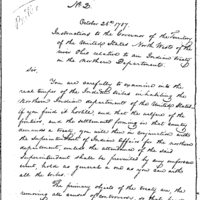 No. 2.
October 26th 1787.
Instructions to the Governor of the Territory
of the United States North West of the
river Ohio relative to an Indian treaty
in the Northern Department.
Sir,
You are carefully to examine into the
real temper of the Indian tribes inhabiting the
Northern Indian department of the United States
If you find it hostile, and that the welfare of the
frontiers, and the settlements forming in that country
demand a treaty, you will then in conjunction with
the Superintendent of Indian Affairs for the northern
department, unless the attendance of the said
Superintendent shall be prevented by any unforeseen
event, hold as general a one as you can with
all the tribes.
The primary object of the treaty is the
removing all causes of controversy, so that peace